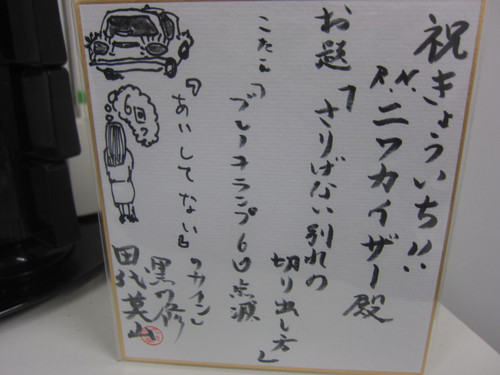 祝きょういち!!
R.N.ニワカイザー殿
お題「さりげない別れの
切り出し方」
こたえ「ブレーキランプ6回点滅
『あいしてない』」
『カイン』
黒の修
田代英山
6回?